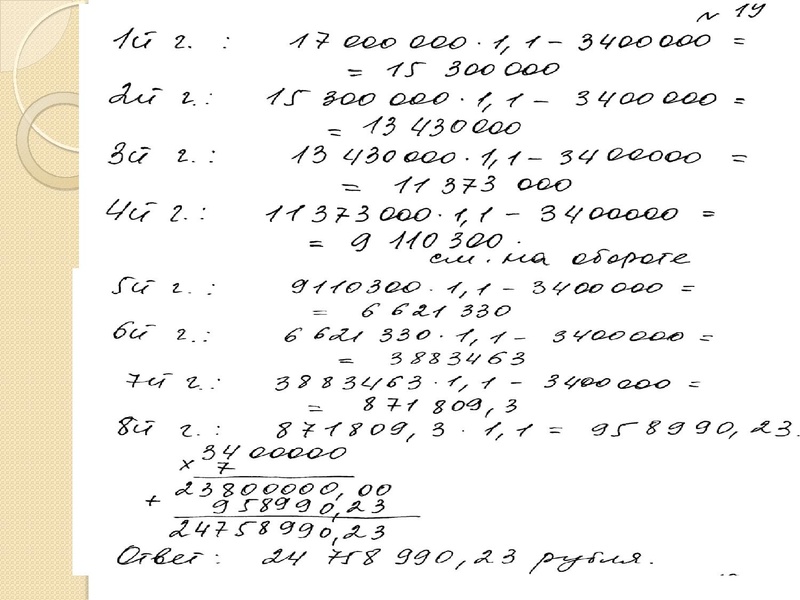 № 19
1й г. : 17 000 000 · 1,1 – 3400 000 =
= 15 300 000
2й г. : 15 300 000 · 1,1 – 3400 000 =
= 13 430 000
3й г. : 13 430 000 · 1,1 – 3400000 =
= 11 373 000
4й г. : 11 373 000 · 1,1 – 3400000 =
= 9 110 300.
см. на обороте
5й г. : 9110300 · 1,1 – 3400 000 =
= 6 621 330
6й г. : 6 621 330 · 1,1 – 3400000 =
= 3883463
7й г. : 3883463 · 1,1 – 3400000 =
= 871 809,3
8й г. : 871809,3 · 1,1 = 958990,23.
3400000
× 7
23800000,00
+ 958990,23
24758990,23
Ответ : 24 758 990,23 рубля.